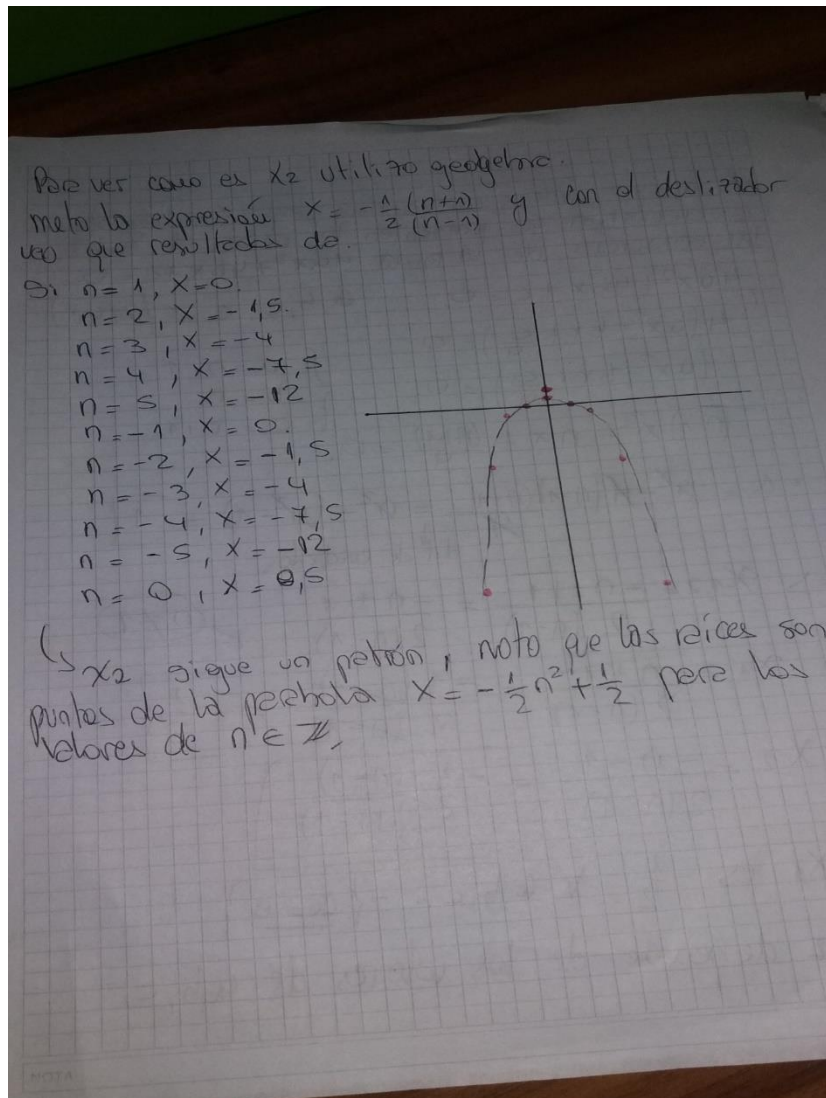 Para ver como es x2 utilizo geogebra.
meto la expresión x = -1/2 (n+1)/(n-1) y con el deslizador
veo que resultados da.
Si n = 1, x = 0.
n = 2, x = -1,5.
n = 3, x = -4
n = 4, x = -7,5
n = 5, x = -12
n = -1, x = 0.
n = -2, x = -1,5
n = -3, x = -4
n = -4, x = -7,5
n = -5, x = -12
n = 0, x = 0,5
↳ x2 sigue un patrón, noto que las raíces son
puntos de la parábola x = -1/2 n² + 1/2 para los
valores de n ∈ ℤ.
NOTA